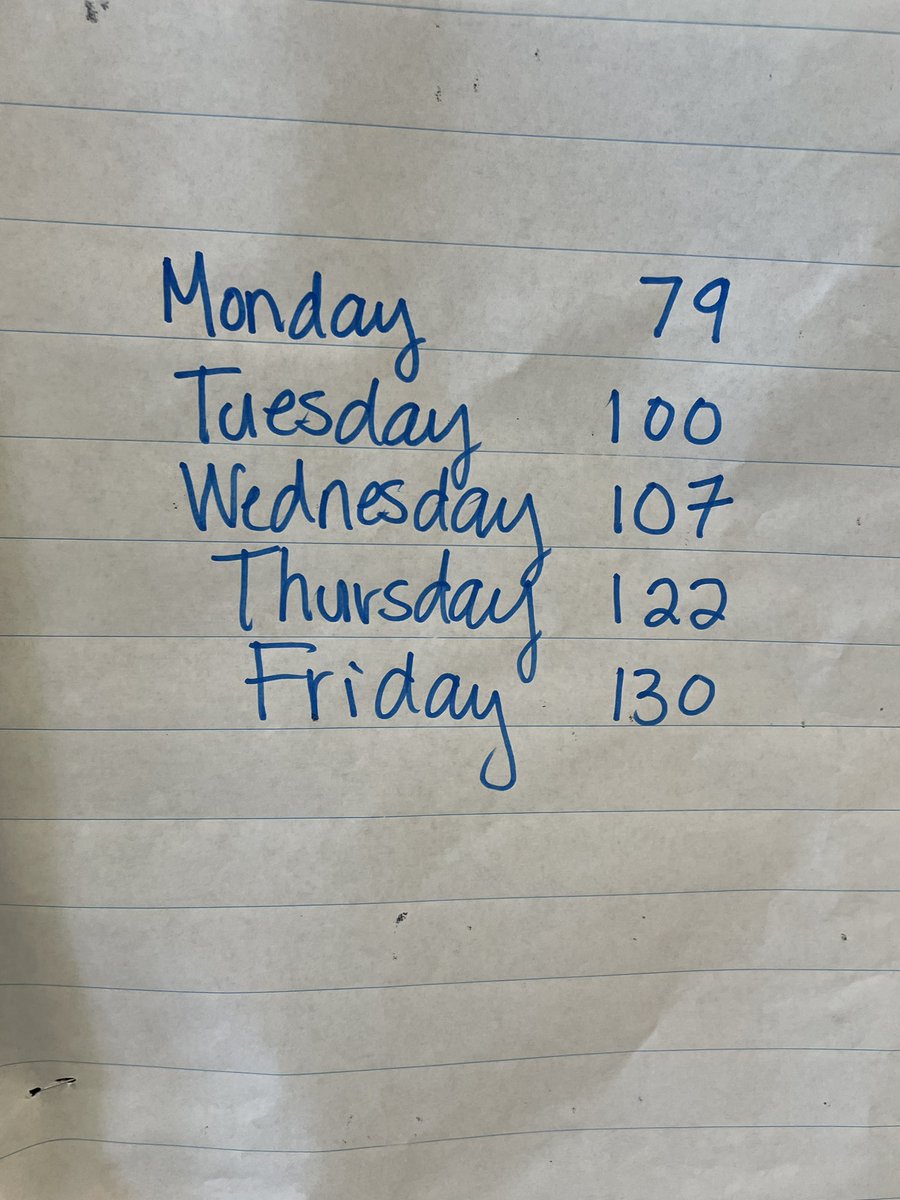 Monday 79
Tuesday 100
Wednesday 107
Thursday 122
Friday 130